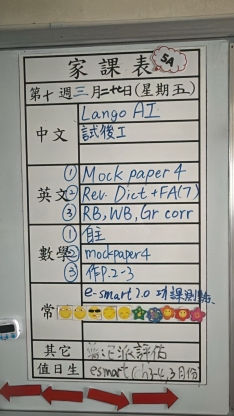 家課表
5A
第十週三月二十七日(星期五)
中文
Lango AI
試後工
英文
① Mock paper 4
② Rev. Dict + FA(7)
③ RB, WB, Gr corr
數學
① 自主
② mockpaper4
③ 作P.2-3
常
e-smart 2.0 功課測驗
其它
派評估
值日生
esmart (ch3-4, 3月份)